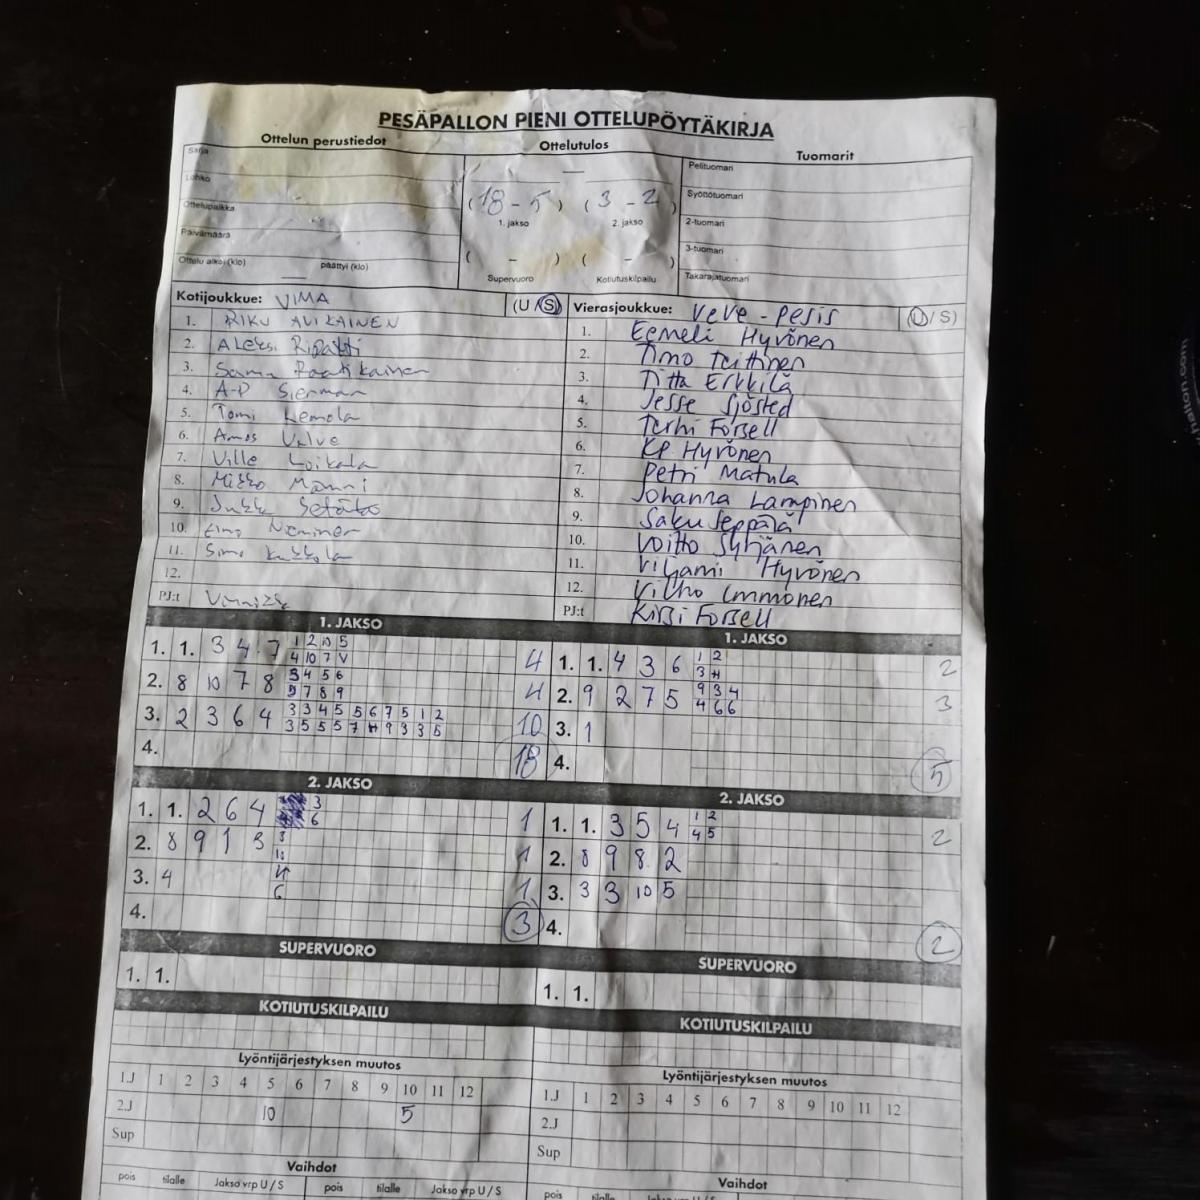 PESÄPALLON PIENI OTTELUPÖYTÄKIRJA
Ottelun perustiedot Ottelutulos Tuomarit
Sarja
Lohko
Ottelupaikka
Päivämäärä
Ottelu alkoi (klo) päättyi (klo)
—
(18 - 5) (3 - 2)
1. jakso 2. jakso
( - ) ( - )
Supervuoro Kotiutuskilpailu
Pelituomari
Syöttötuomari
2-tuomari
3-tuomari
Takarajatuomari
Kotijoukkue: VIMA (U/S)
1. RIKU AVIKAINEN
2. Aleksi Ripatti
3. Samu Raatikainen
4. A-P Sierman
5. Tomi Hemola
6. Amos Valve
7. Ville Loikala
8. Mikko Manni
9. Jukka
10. Nieminen
11. Simo Kukkola
12.
PJ:t
Vierasjoukkue: VeVe - Pesis (U/S)
1. Eemeli Hyvönen
2. Timo
3. Titta Erkkilä
4. Jesse Sjösted
5. Terhi Forsell
6. KP Hyvönen
7. Petri Matula
8. Johanna Lampinen
9. Saku Seppälä
10. Voitto Syrjänen
11. Viljami Hyvönen
12. Vilho Immonen
PJ:t Kirsi Forsell
1. JAKSO
1. 1. 3 4 7 1 2 10 5 4
4 10 7 V
2. 8 10 7 8 3 4 5 6 4
5 7 8 9
3. 2 3 6 4 3 3 4 5 5 6 7 5 1 2 10
3 5 5 5 7 11 9 3 3 5
4. 18
1. JAKSO
1. 1. 4 3 6 1 2 2
3 H
2. 9 2 7 5 9 3 4 3
4 6 6
3. 1
4. 5
2. JAKSO
1. 1. 2 6 4 3 1
6
2. 8 9 1 3 1
3. 4 1
6
4. 3
2. JAKSO
1. 1. 3 5 4 1 2 2
4 5
2. 8 9 8 2
3. 3 3 10 5
4. 2
SUPERVUORO
1. 1.
SUPERVUORO
1. 1.
KOTIUTUSKILPAILU
KOTIUTUSKILPAILU
Lyöntijärjestyksen muutos
1.J 1 2 3 4 5 6 7 8 9 10 11 12
2.J 10 5
Sup
Lyöntijärjestyksen muutos
1.J 1 2 3 4 5 6 7 8 9 10 11 12
2.J
Sup
Vaihdot
pois tilalle Jakso vrp U / S pois tilalle Jakso vrp U / S
Vaihdot
pois tilalle Jakso vrp U / S pois tilalle Jakso vrp U / S